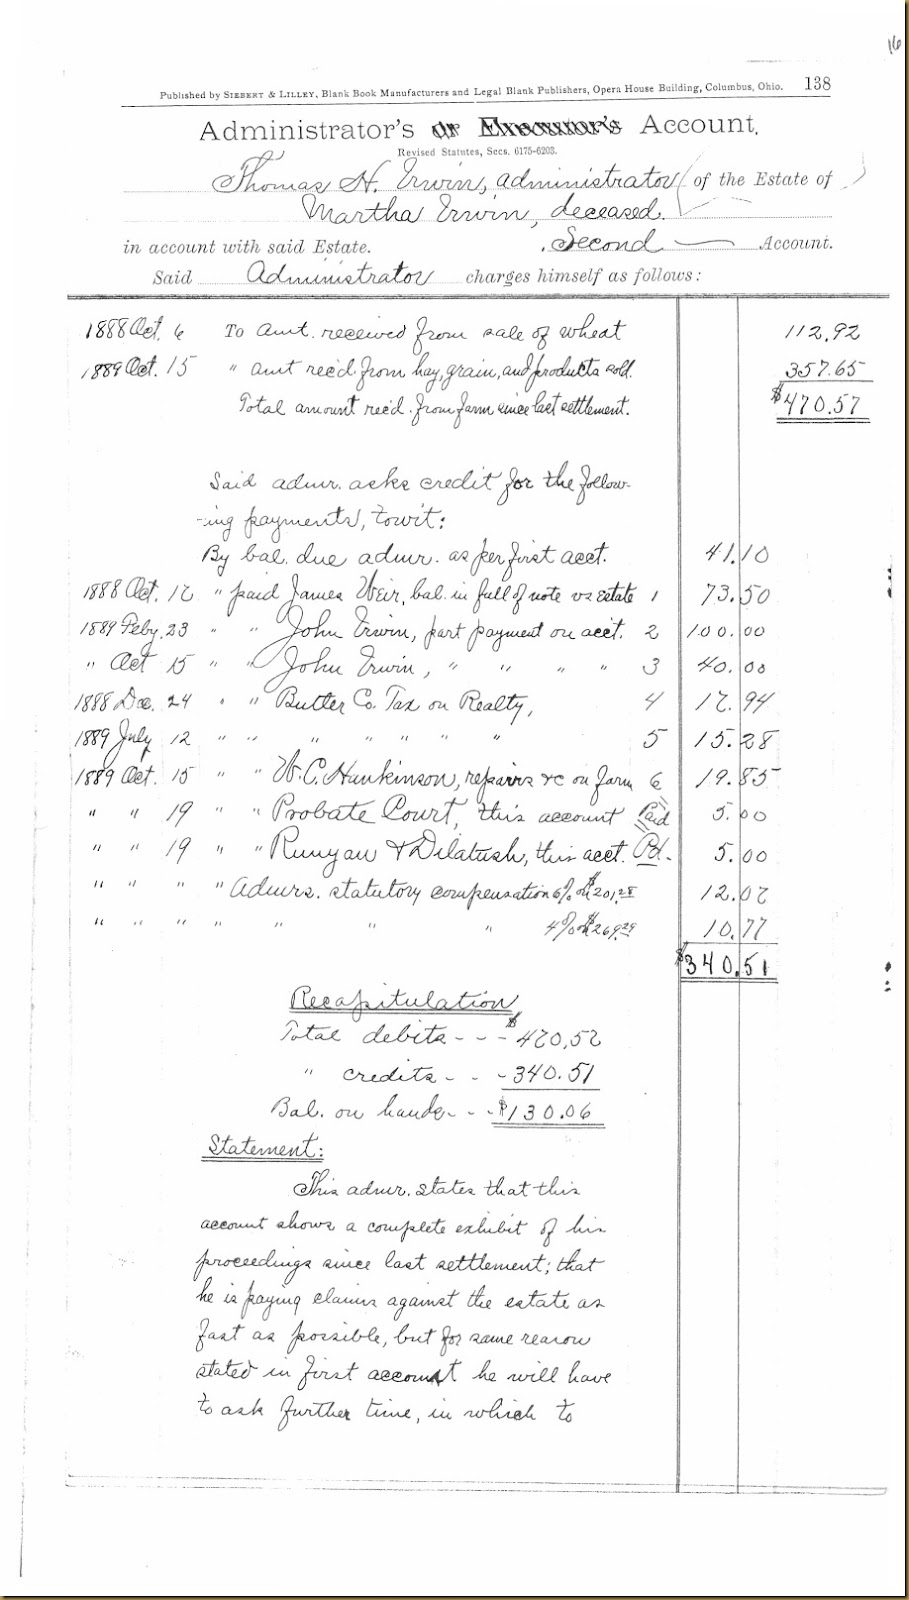 16
Published by SIEBERT & LILLEY, Blank Book Manufacturers and Legal Blank Publishers, Opera House Building, Columbus, Ohio. 138
Administrator's or Executor's Account.
Revised Statutes, Secs. 6175-6203.
Thomas H. Erwin, administrator of the Estate of
Martha Erwin, deceased.
in account with said Estate. Second Account.
Said Administrator charges himself as follows:
1888 Oct. 6 To amt. received from sale of wheat 112.92
1889 Oct. 15 " amt rec'd from hay, grain, and products sold. 357.65
Total amount rec'd. from farm since last settlement. $470.57
Said admr. asks credit for the follow-
-ing payments, towit:
By bal. due admr. as per first acct. 41.10
1888 Oct. 17 " paid James Weir, bal. in full of note vs Estate 1 73.50
1889 Feby. 23 " " John Erwin, part payment on acct. 2 100.00
" Oct 15 " " John Erwin, " " " " 3 40.00
1888 Dec. 24 " " Butler Co. Tax on Realty, 4 17.94
1889 July 12 " " " " " " " 5 15.28
1889 Oct. 15 " " W. C. Hankinson, repairs &c on farm 6 19.85
" " 19 " " Probate Court, this account Paid 5.00
" " 19 " " Runyan & Dilatush, this acct. Pd. 5.00
" " " " Admrs. statutory compensation 6% on $201.28 12.07
" " " " " " " 4% on $269.29 10.77
$340.51
Recapitulation
Total debits - - - $470.57
" credits - - - 340.51
Bal. on hand - - - $130.06
Statement:
This admr. states that this
account shows a complete exhibit of his
proceedings since last settlement; that
he is paying claims against the estate as
fast as possible, but for same reason
stated in first account he will have
to ask further time, in which to